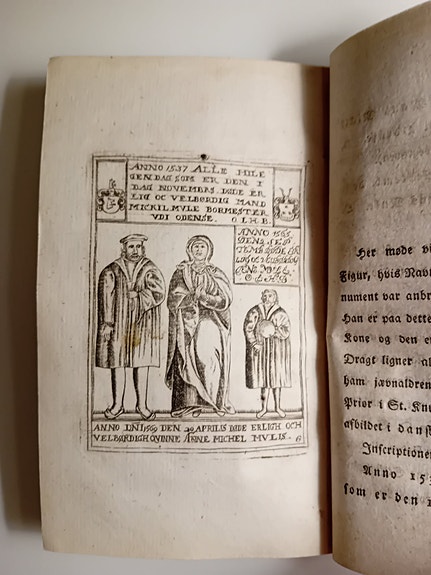 ANNO 1537 ALLE HILE
GENDAG SOM ER DEN I
DAG NOVEMBRS DØDE ER
LIG OC VELBØRDIG MAND
MICKIL MVLE BORMESTER
VDI ODENSE. O. L. H. B.
ANNO 1565
DEN
ANNO DNI 1569 DEN 20 APRILIS DØDE ERLIGH OCH
VELBØRDIGH QVINNE ANNE MICHEL MVLIS. 6
Her møde vi
Figur, hvis Navn
nument var anbr
Han er paa dette
Kone og den e
Dragt ligner al
ham jævnaldren
Prior i St. Knu
afbildet i dansk
Inscriptionen
Anno 15
som er den 1